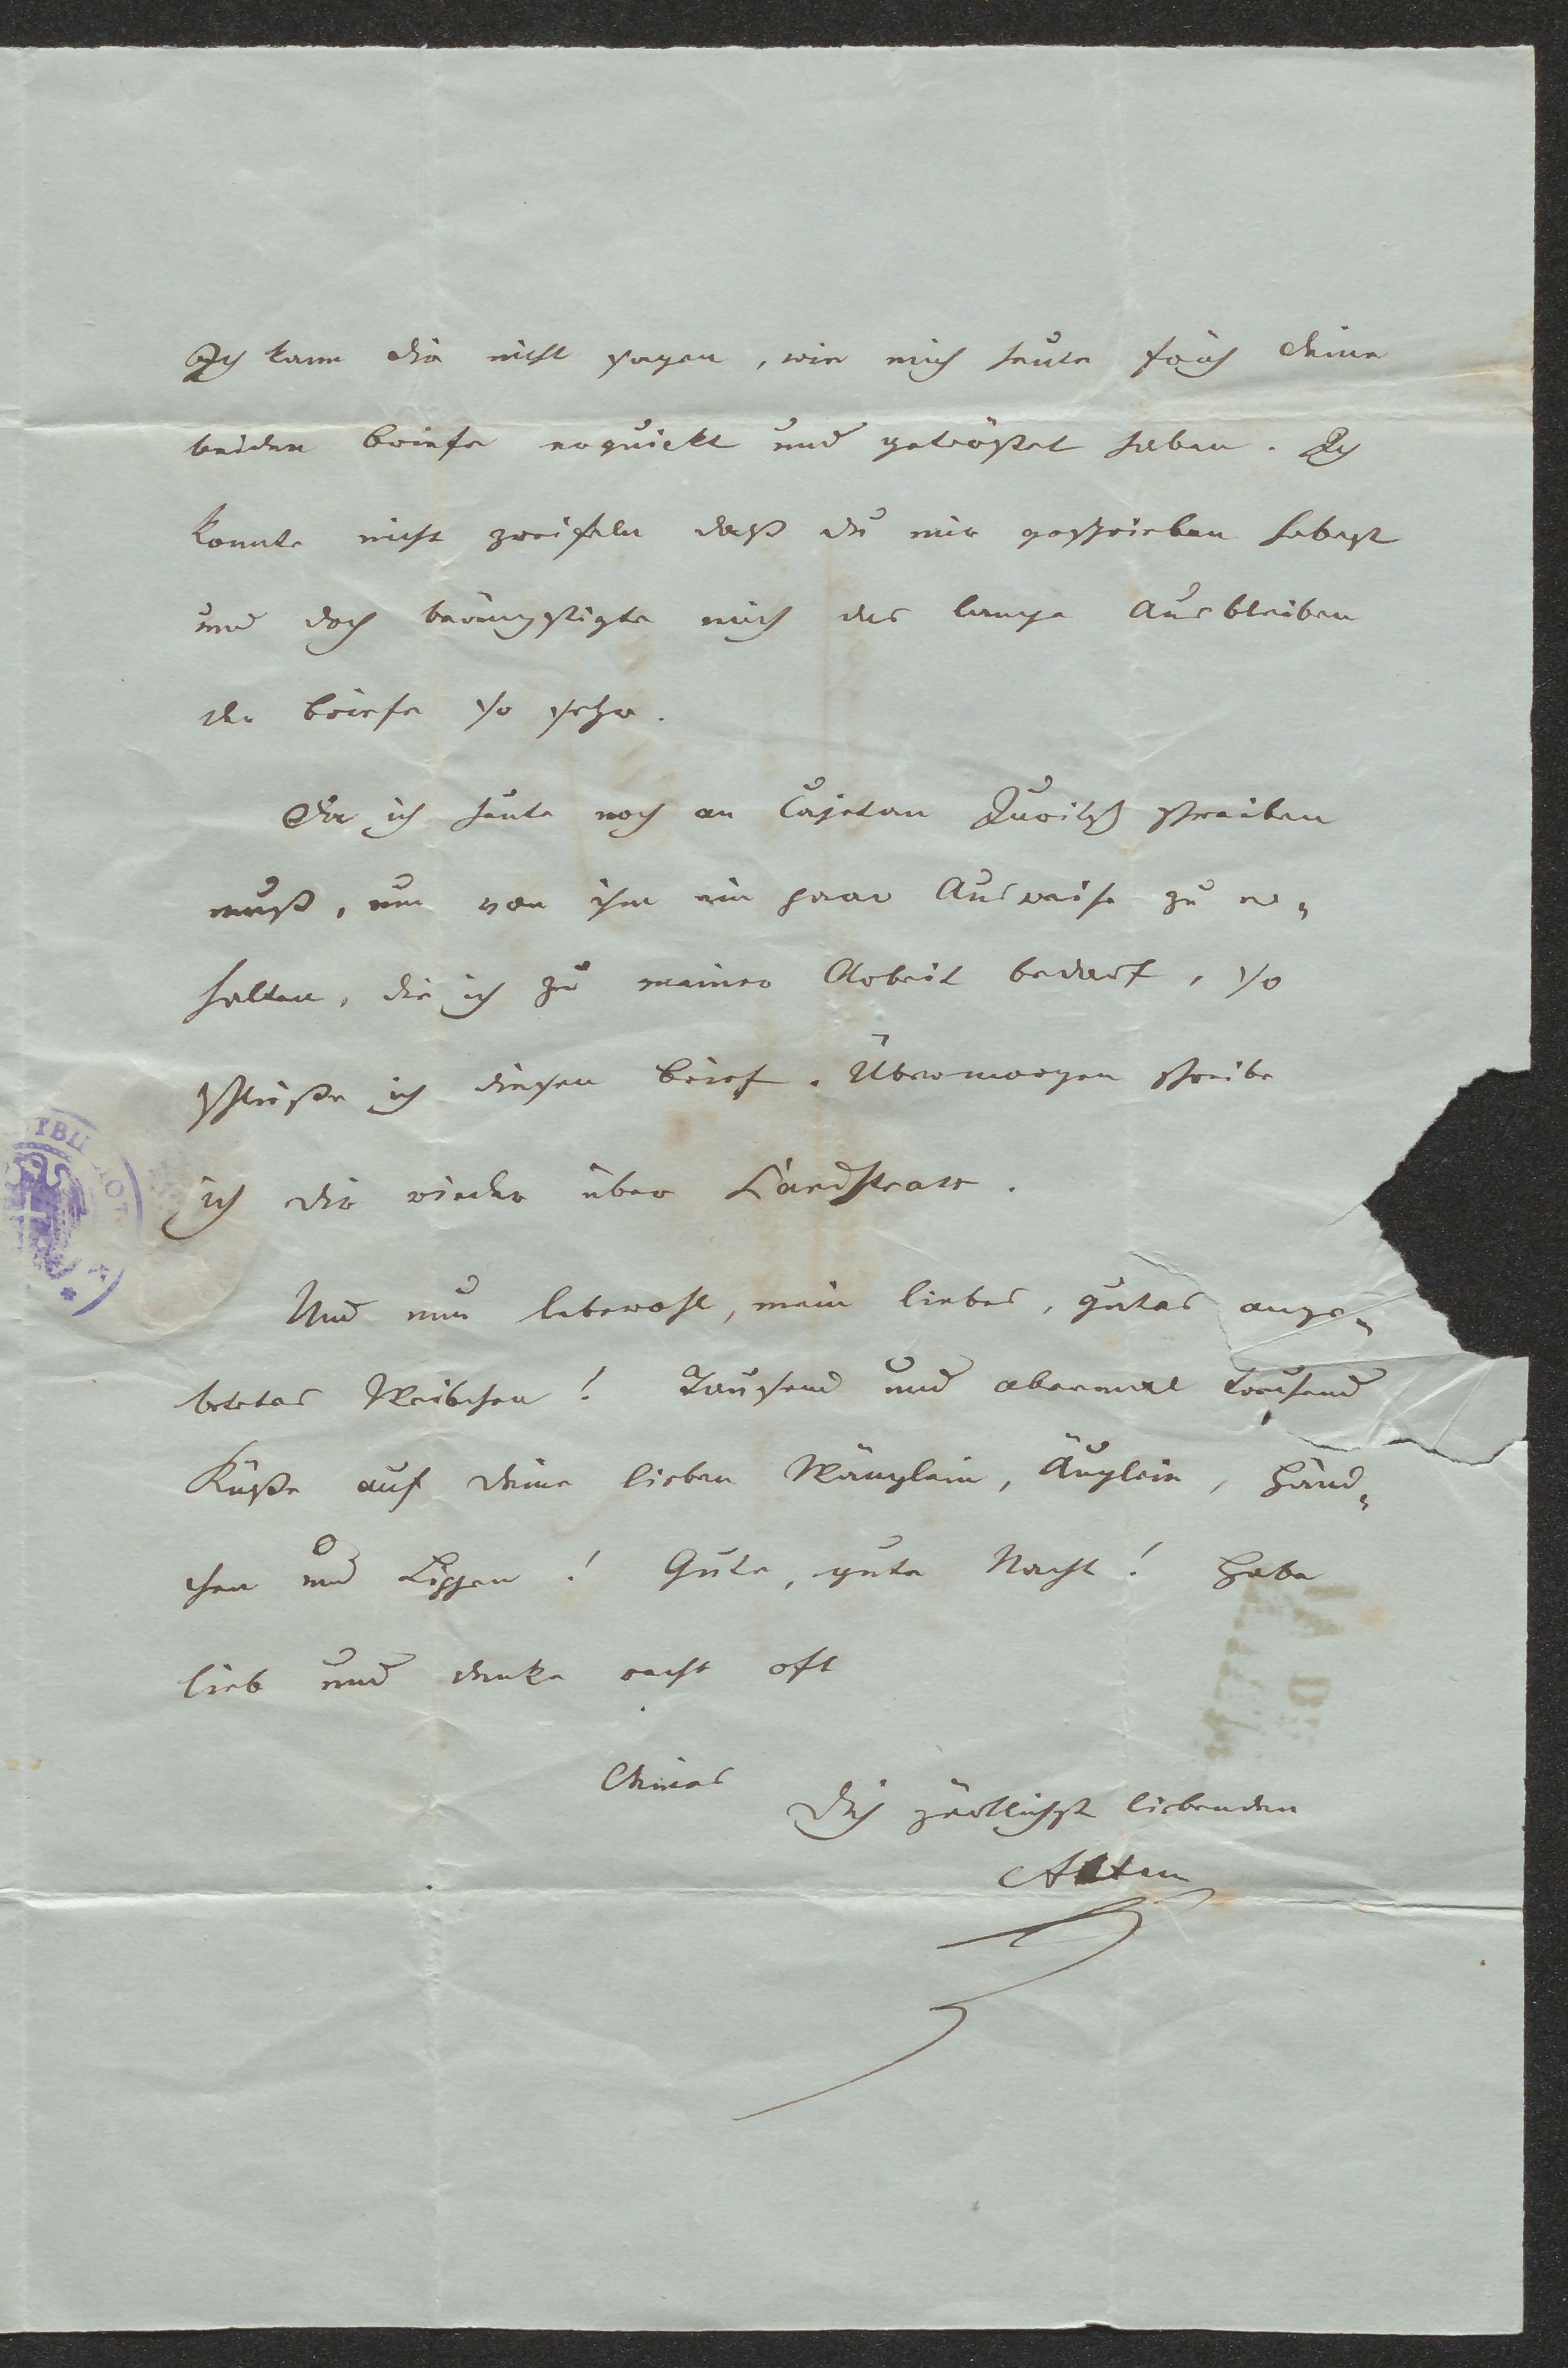 Ich kann dir nicht sagen, wie mich heute früh deine
beiden briefe erquickt und getröstet haben. Ich
konnte nicht zweifeln daß du mir geschrieben habest
und doch beängstigte mich das lange Ausbleiben
der briefe so sehr.
Da ich heute noch an Cajetan schreiben
muß, um von ihm ein paar Ausweise zu er¬
halten, die ich zu meiner Arbeit bedarf, so
schließe ich diesen brief. Übermorgen schreibe
ich dir wieder über Landstrass.
Und nun lebewohl, mein liebes, gutes ange¬
betetes Weibchen! Tausend und abermal tausend
Küße auf deine lieben Wänglein, Äuglein, Händ¬
chen und Lippen! Gute, gute Nacht! Habe
lieb und denke recht oft
Deines
Dich zärtlichst liebenden